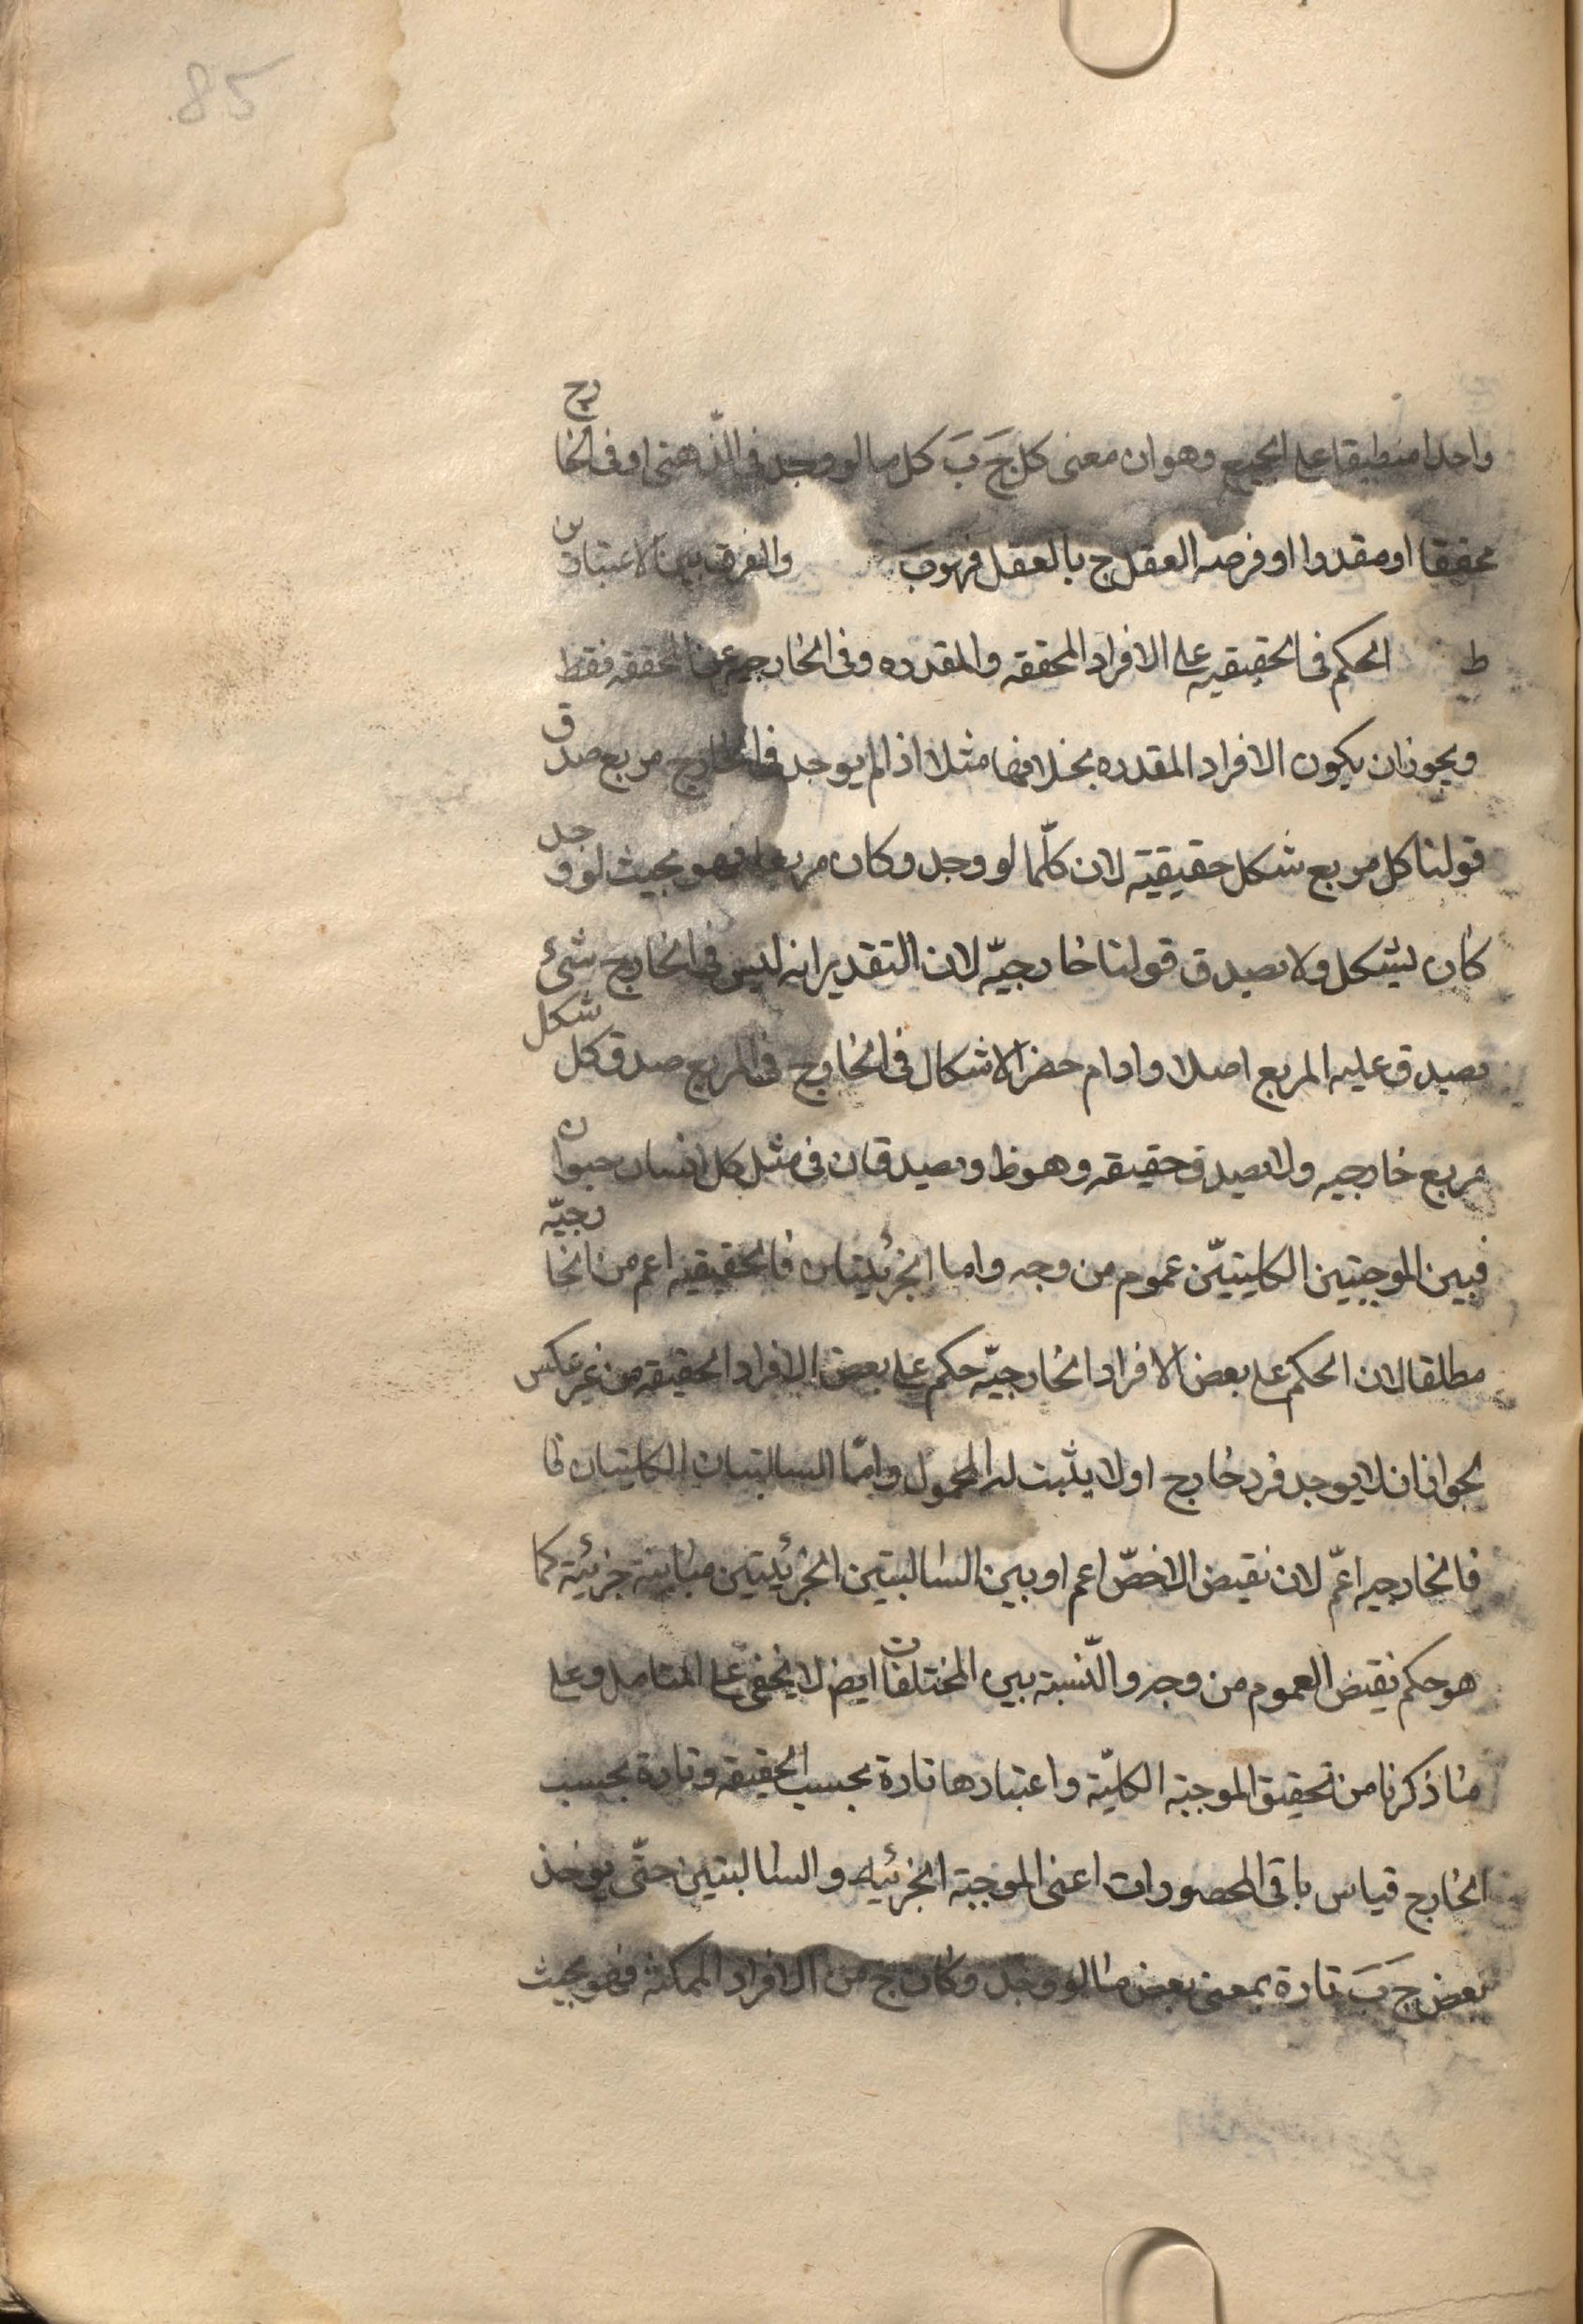 85
واحدا منطبقا على الجميع وهو ان معنى كل جَ بَ كل ما لو وجد فى الذهنى او فى الخارج
محققا او مقدرا او فرضه العقل ج بالعقل فهو بَ والفرق بين الاعتبارين
ط الحكم فى الحقيقيه على الافراد المحققه والمقدره وفى الخارجيه على المحققه فقط
ويجوز ان يكون الافراد المقدره بخلافها مثلا اذا لم يوجد فى الخارج مربع صدق
قولنا كل مربع شكل حقيقية لان كلّما لو وجد وكان مربعا فهو بحيث لو وجد
كان لشكل ولا يصدق قولنا خارجيّه لان التقدير انه ليس فى الخارج شئ
يصدق عليه المربع اصلا واذا م حضر الاشكال فى الخارج فى المربع صدق كل شكل
مربع خارجيه ولا يصدق حقيقه وهو ظ ويصدقان فى مثل كل انسان حيوان
فبين الموجبتين الكليتيّن عموم من وجه واما الجزئيتان فالحقيقيه اعم من الخارجيّه
مطلقا لان الحكم على بعض الافراد الخارجيّه حكم على بعض الافراد الحقيقه من غير عكس
لجواز ان لا يوجد فرد خارج او لا يثبت له المحمول وامّا السالبتان الكليتان فا
فالخارجيه اعمّ لان نقيض الاخصّ اعم او بين السالبتين الجزئيتين مباينة جزئية كما
هو حكم نقيض العموم من وجه والنّسبة بين المختلفات ايض لا يخفى على المتاصل وعلى
ما ذكرنا من تحقيق الموجبة الكليّة واعتبارها تارة بحسب الحقيقه وتارة بحسب
الخارج قياس باقى المحصورات اعنى الموجبة الجزئيه والسالبتين حتّى يوخذ
بعض جَ بَ تارة بمعنى بعض ما لو وجد وكان ج من الافراد الممكنه فهو بحيث